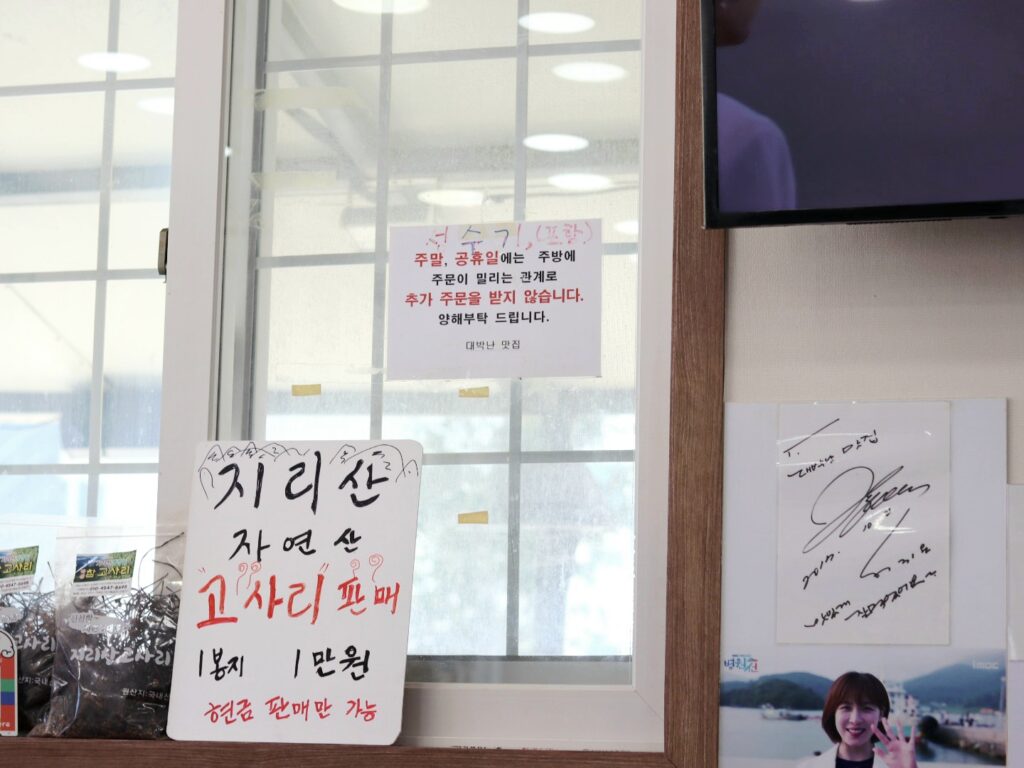 석수기,(포항)
주말, 공휴일에는 주방에
주문이 밀리는 관계로
추가 주문을 받지 않습니다.
양해부탁 드립니다.
대박난 맛집
지리산
자연산
"고사리" 판매
1봉지 1만원
현금 판매만 가능
고사리
지리산고사리
원산지:국내산
고사리
T.
대박난 맛집
2017.
병원선
imbc